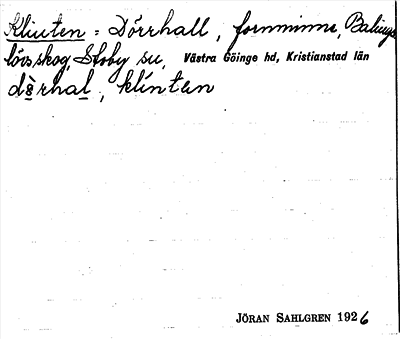 Klinten = Dörrhall, fornminne, Balings-
lövs skog, Stoby sn, Västra Göinge hd, Kristianstad län
dö̀rhal, klintan
JÖRAN SAHLGREN 1926